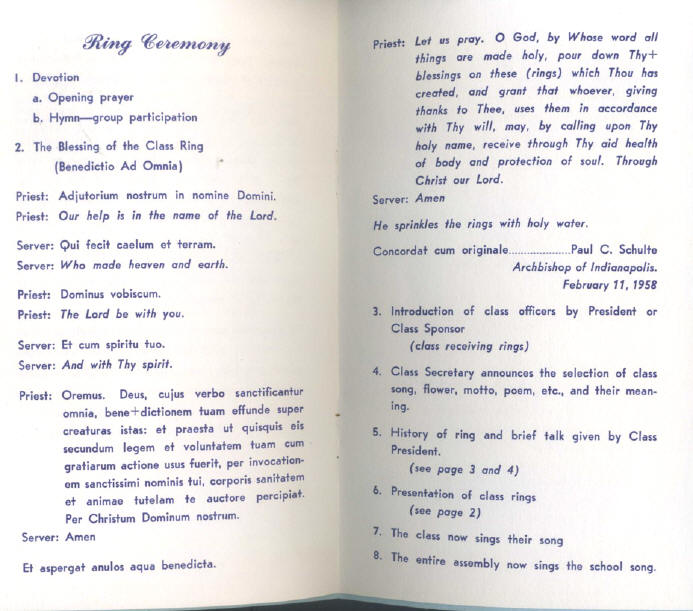 Ring Ceremony
1. Devotion
a. Opening prayer
b. Hymn—group participation
2. The Blessing of the Class Ring
(Benedictio Ad Omnia)
Priest: Adjutorium nostrum in nomine Domini.
Priest: Our help is in the name of the Lord.
Server: Qui fecit caelum et terram.
Server: Who made heaven and earth.
Priest: Dominus vobiscum.
Priest: The Lord be with you.
Server: Et cum spiritu tuo.
Server: And with Thy spirit.
Priest: Oremus. Deus, cujus verbo sanctificantur
omnia, bene+dictionem tuam effunde super
creaturas istas: et praesta ut quisquis eis
secundum legem et voluntatem tuam cum
gratiarum actione usus fuerit, per invocation-
em sanctissimi nominis tui, corporis sanitatem
et animae tutelam te auctore percipiat.
Per Christum Dominum nostrum.
Server: Amen
Et aspergat anulos aqua benedicta.
Priest: Let us pray. O God, by Whose word all
things are made holy, pour down Thy+
blessings on these (rings) which Thou has
created, and grant that whoever, giving
thanks to Thee, uses them in accordance
with Thy will, may, by calling upon Thy
holy name, receive through Thy aid health
of body and protection of soul. Through
Christ our Lord.
Server: Amen
He sprinkles the rings with holy water.
Concordat cum originale....................Paul C. Schulte
Archbishop of Indianapolis.
February 11, 1958
3. Introduction of class officers by President or
Class Sponsor
(class receiving rings)
4. Class Secretary announces the selection of class
song, flower, motto, poem, etc., and their mean-
ing.
5. History of ring and brief talk given by Class
President.
(see page 3 and 4)
6. Presentation of class rings
(see page 2)
7. The class now sings their song
8. The entire assembly now sings the school song.